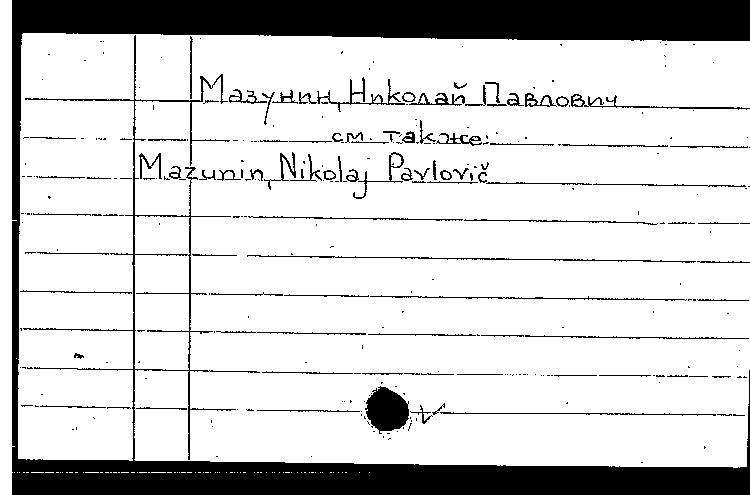 Мазунин, Николай Павлович
см. также:
Mazunin, Nikolaj Pavlovič